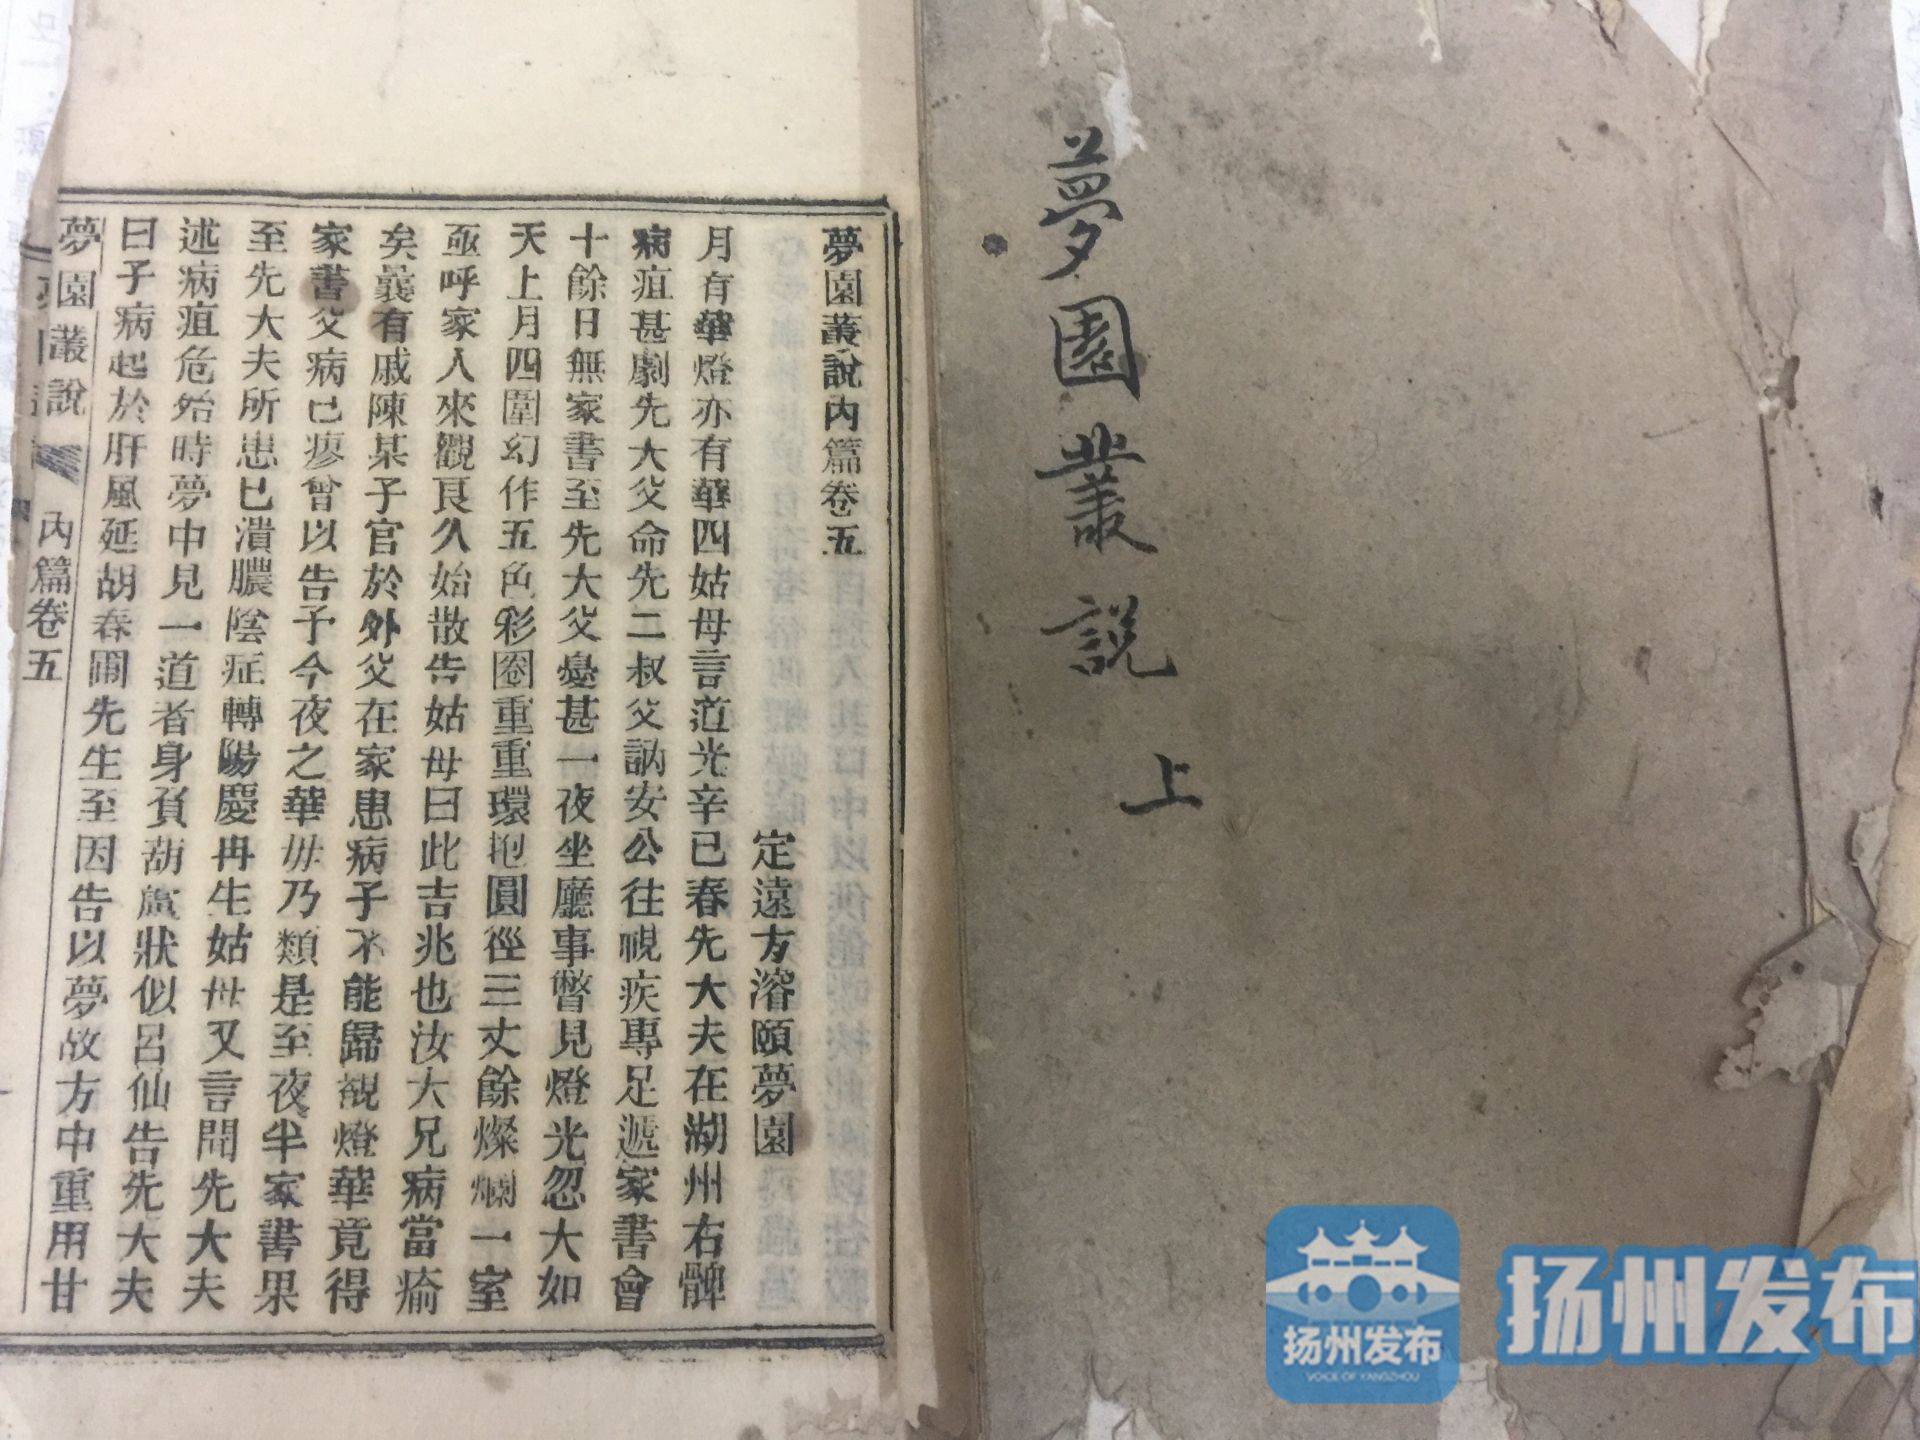 夢園叢説
上
夢園叢說內篇卷五
定遠方濬頤夢園
月有華燈亦有華四姑母言道光辛巳春先大夫在湖州右髀
病疽甚劇先大父命先二叔父訥安公往視疾專足遞家書會
十餘日無家書至先大父憂甚一夜坐廳事瞥見燈光忽大如
天上月四圍幻作五色彩圈重重環抱圓徑三丈餘燦爛一室
亟呼家人來觀良久始散告姑母曰此吉兆也汝大兄病當瘉
矣曩有戚陳某子官於外父在家患病子不能歸視燈華竟得
家書父病已瘳曾以告予今夜之華毋乃類是至夜半家書果
至先大夫所患已潰膿陰症轉陽慶再生姑母又言聞先大夫
述病疽危殆時夢中見一道者身負葫蘆狀似呂仙告先大夫
曰子病起於肝風延胡春圃先生至因告以夢故方中重用甘
夢園叢說
內篇卷五
扬州发布
VOICE OF YANGZHOU
扬州发布